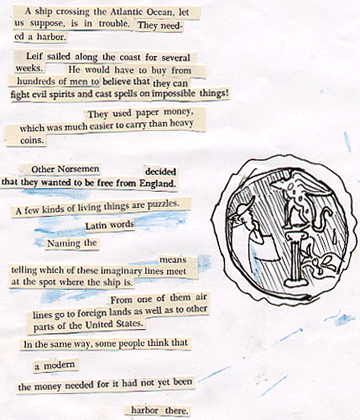 A ship crossing the Atlantic Ocean, let
us suppose, is in trouble. They need-
ed a harbor.
Leif sailed along the coast for several
weeks. He would have to buy from
hundreds of men to believe that they can
fight evil spirits and cast spells on impossible things!
They used paper money,
which was much easier to carry than heavy
coins.
Other Norsemen decided
that they wanted to be free from England.
A few kinds of living things are puzzles.
Latin words
Naming the
means
telling which of these imaginary lines meet
at the spot where the ship is.
From one of them air
lines go to foreign lands as well as to other
parts of the United States.
In the same way, some people think that
a modern
the money needed for it had not yet been
harbor there.